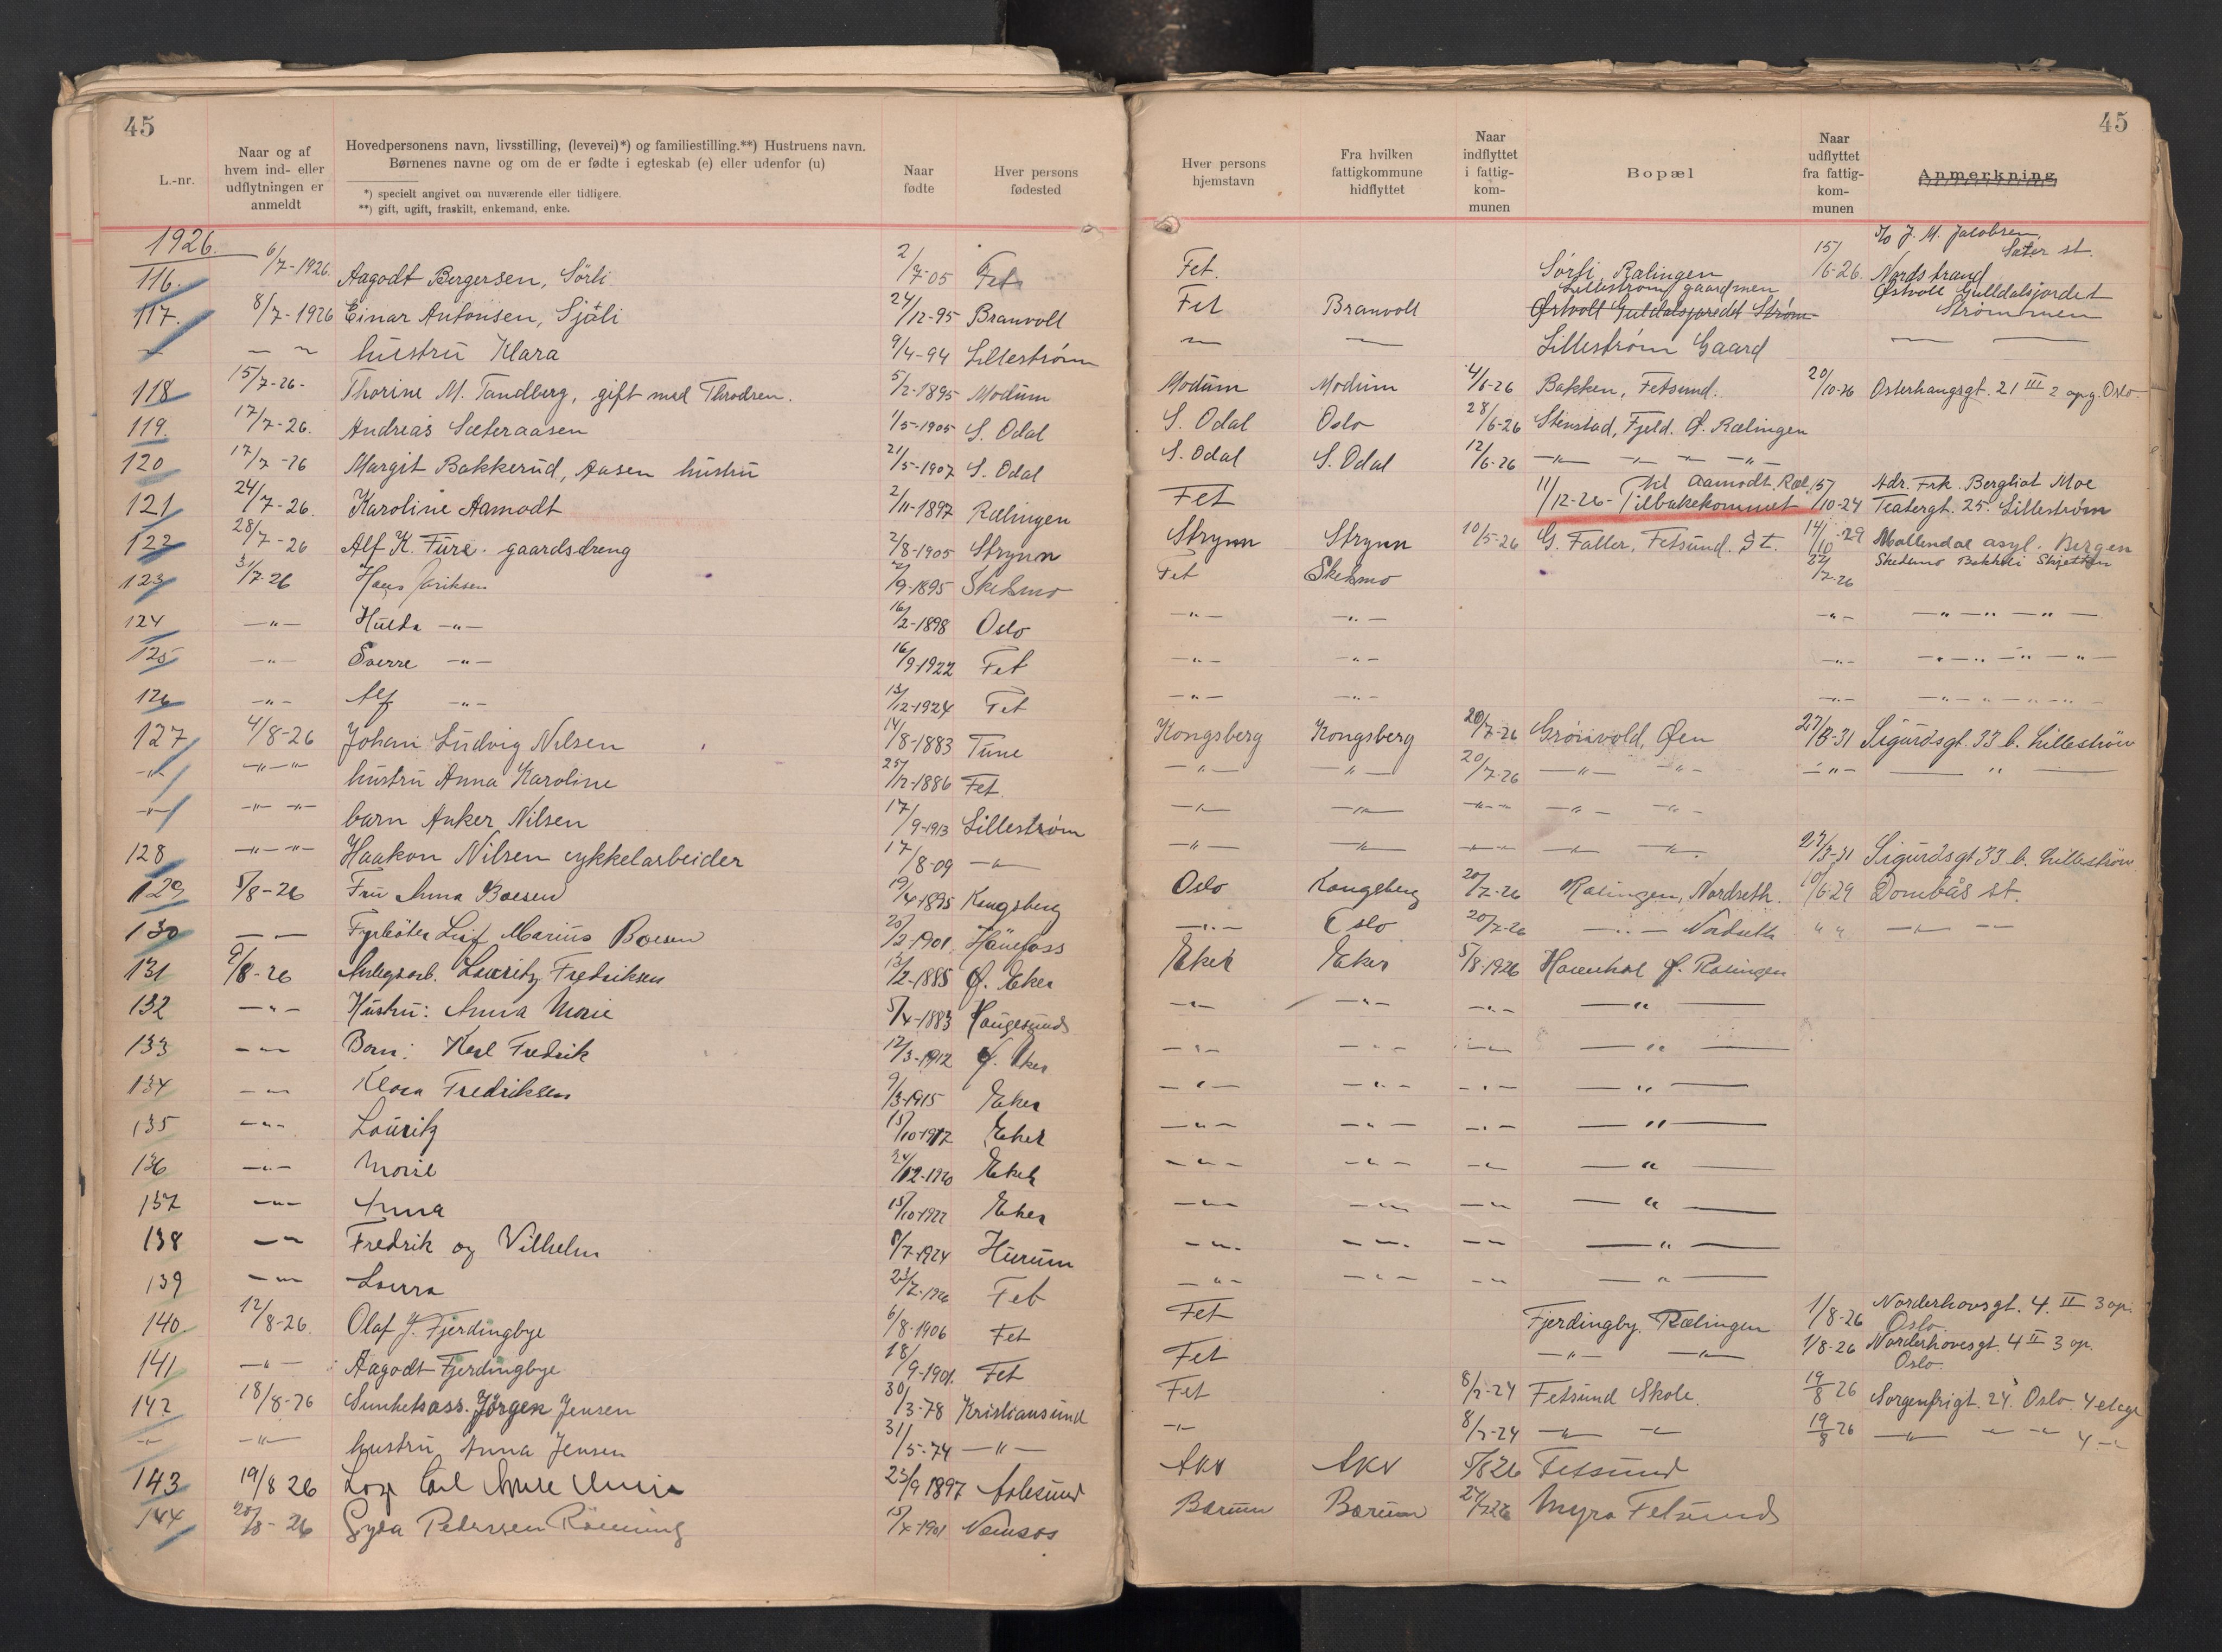 45
45
L.-nr.
Naar og af hvem ind- eller udflytningen er anmeldt
Hovedpersonens navn, livsstilling, (levevei)*) og familiestilling.**) Hustruens navn.
Børnenes navne og om de er fødte i egteskab (e) eller udenfor (u)
*) specielt angivet om nuværende eller tidligere.
**) gift, ugift, fraskilt, enkemand, enke.
Naar fødte
Hver persons fødested
Hver persons hjemstavn
Fra hvilken fattigkommune hidflyttet
Naar indflyttet i fattigkommunen
Bopæl
Naar udflyttet fra fattigkommunen
Anmerkning
1926.
116. 6/7-1926. Aagodt Bergersen, Sörli 2/7-05 Fet Fet. Sørli, Rælingen 15/6-26. J. M. Jacobsen, Sæter st. Nordstrand
117. 8/7-1926 Einar Antonsen, Sjåli 24/12-95 Branvoll Fet Branvoll Lillestrøm gaard Østvoll Guldalsjordet Strøm- Østvoll Gulldalsjordet Strømmen
— — hustru Klara 9/4-94 Lillestrøm — — Lillestrøm Gaard — —
118 15/7-26- Thorine M. Tandberg, gift med Throdsen. 5/2-1895 Modum Modum Modum 4/6-26 Bakken, Fetsund. 20/10-26 Østerhaugsgt. 21 III 2 opg. Oslo.
119. 17/7-26. Andreas Sæteraasen 1/5-1905 S. Odal S. Odal Oslo 28/6-26 Stenstad, Fjeld. Ø. Rælingen
120 17/7-26 Margit Bakkerud, Aasen hustru 21/5-1907 S. Odal S. Odal S. Odal 12/6-26 —"— —"— —"—
121 24/7-26. Karoline Aamodt 2/11-1897 Rælingen Fet 11/12-26- Tilbakekommet Aamodt. Ræl. 15/10-24 Adr. Frk. Bergliot Moe Teatergt. 25. Lillestrøm
122 28/7-26 Alf K. Fure. gaardsdreng 2/8-1905 Strynn Strynn Strynn 10/5-26 G. Faller, Fetsund. St. 14/10-29 Møllendal asyl. Bergen
123 31/7-26 Hans Jariksen 9-1895 Skedsmo Fet Skedsmo 22/7-26 Skedsmo Bakkeli Skjetten
124 —"— Hulda —"— 16/2-1898 Oslo —"— —"— —"— —"—"—"—
125 —"— Sverre —"— 16/9-1922 Fet —"— —"— —"— —"—"—"—
126 —"— Alf —"— 13/12-1924 Fet —"— —"— —"— —"—"—"—
127 4/8-26 Johan Ludvig Nilsen 14/8-1883 Tune Kongsberg Kongsberg 20/7-26 Grønvold, Øen 27/3-31 Sigurdsgt. 33 b. Lillestrøm
—"— —"—"— hustru Anna Karoline 25/12-1886 Fet. —"— —"— 20/7-26 —"— —"— —"— —"—
—"— —"— —"— barn Anker Nilsen 17/9-1913 Lillestrøm —"— —"— —"— —"— —"—
128 —"—"— Haakon Nilsen cykkelarbeider 17/8-09 —"— —"— —"— —"— —"— —"— 27/3-31 Sigurdsgt 33 b. Lillestrøm
129 5/8-26 Fru Anna Boesen 19/4-1895 Kongsberg Oslo Kongsberg 20/7-26 Rælingen, Nordseth. 10/6-29 Dombås st.
130 — — Fyrbøter Leif Marius Boesen 20/2-1901 Hönefoss —"— Oslo 20/7-26 —"— Nordseth " " —"— —
131 9/8-26 Anlegsarb. Lauritz Fredriksen 13/2-1885 Ø. Eker Eker Eker 5/8-1926 Ø. Rælingen
132 —"— Hustru: Anna Marie 5/4-1883 Haugesund —"— —"— —"— —"—
133 —"— Barn: Karl Fredrik 12/3-1912 Ø. Eker —"— —"— —"— —"—
134 —"— Klara Fredriksen 9/3-1915 Eker —"— —"— —"— —"—
135 —"— Lauritz 15/10-1917 Eker —"— —"— —"— —"—
136 —"— Marie 24/12-1920 Eker —"— —"— —"— —"—
137 —"— Anna 15/10-1922 Eker —"— —"— —"— —"—
138 —"— Fredrik og Vilhelm 8/7-1924 Hurum —"— —"— —"— —"—
139 —"— Laura 23/2-1926 Fet —"— —"— —"— —"—
140. 12/8-26. Olaf J. Fjerdingbye 6/8-1906 Fet Fet Fjerdingby. Rælingen 1/8-26 Norderhovsgt. 4. II 3 op. Oslo.
141 —"— Aagodt Fjerdingbye 18/9-1901. Fet Fet —"— —"— 1/8-26 Norderhovesgt. 4 II 3 op. Oslo.
142 18/8-26 Sunhetsass. Jørgen Jensen 30/3-78 Kristiansund Fet 8/2-24 Fetsund Skole. 19/8 26 Sorgenfrigt. 24. Oslo. 4 etage
—"— —"— hustru Anna Jensen 31/5-74 —"— —"— 8/2-24 —"— —"— 19/8 26 —"— —"— —"— 4 —"—
143 19/8 26 23/9 1897 Aalesund Akv Akv 5/8 26 Fetsund
144 20/8-26 Gyda Pedersen Rönning 15/4-1901 Namsos Bærum Bærum Myra Fetsund